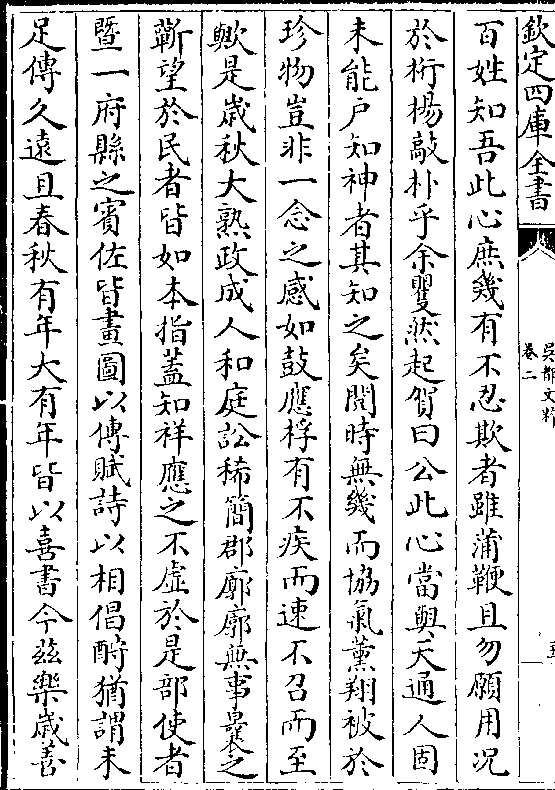 欽定四庫全書
吳都文粹
卷二
百姓知吾此心庶幾有不忍欺者雖蒲鞭且勿願用况
於桁楊敲朴乎余矍然起賀曰公此心當與天通人固
未能户知神者其知之矣閱時無幾而協氣薰翔被於
珍物豈非一念之感如鼓應桴有不疾而速不召而至
歟是歲秋大熟政成人和庭訟稀簡郡廓廓無事曩之
蘄望於民者皆如本指蓋知祥應之不虚於是部使者
暨一府縣之賓佐皆畫圖以傳賦詩以相倡酧猶謂未
足傳久遠且春秋有年大有年皆以喜書今兹樂歲善